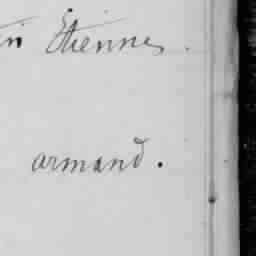 in Etienne
armand.